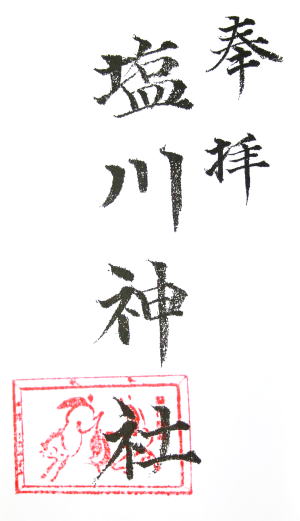 奉拝
塩川神社